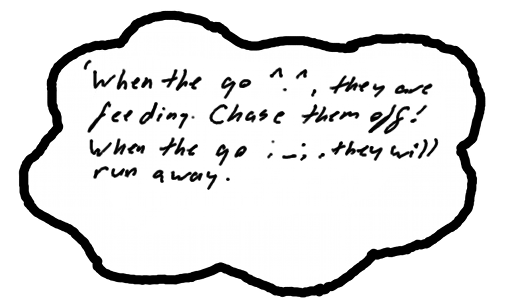 'When the go ^.^, they are
feeding. Chase them off!
When the go ;_;, they will
run away.